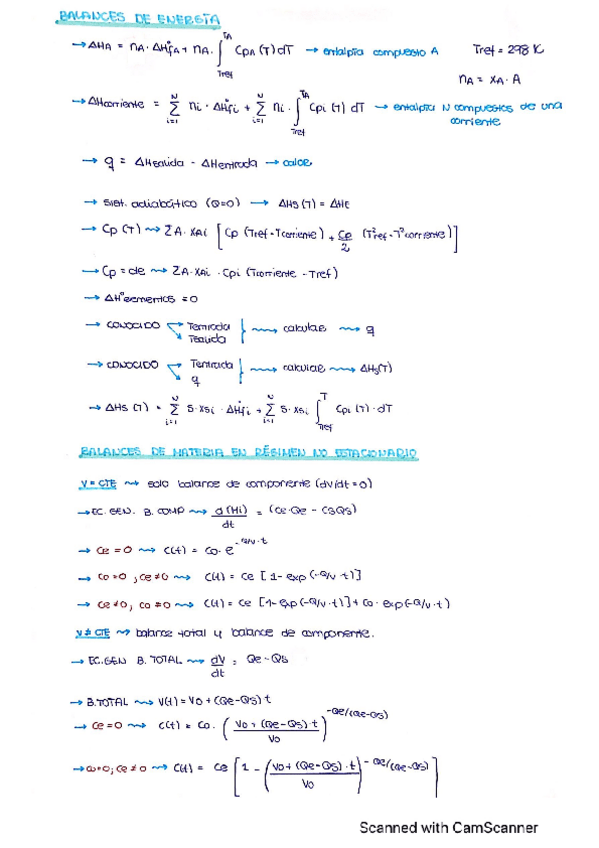 BALANCES DE ENERGÍA
→ ΔHA = nA · ΔH°fA + nA · ∫ TA Tref CpA (T) dT → entalpía compuesto A Tref = 298 K
nA = xA · A
→ ΔHcorriente = Σ N i=1 ni · ΔH°fi + Σ N i=1 ni · ∫ TA Tref Cpi (T) dT → entalpía N compuestos de una corriente
→ q = ΔHsalida - ΔHentrada → calor
→ Sist. adiabático (Q=0) → ΔHs (T) = ΔHE
→ Cp (T) ⇝ ΣA · xAi [Cp (Tref - Tcorriente) + Cp/2 (T²ref - T²corriente)]
→ Cp = cte ⇝ ΣA · xAi · Cpi (Tcorriente - Tref)
→ ΔH°elementos = 0
→ CONOCIDO Tentrada Tsalida } ⇝ calcular ⇝ q
→ CONOCIDO Tentrada q } ⇝ calcular ⇝ ΔHs(T)
→ ΔHs (T) = Σ N i=1 S · xsi · ΔH°fi + Σ N i=1 S · xsi ∫ T Tref Cpi (T) · dT
BALANCES DE MATERIA EN RÉGIMEN NO ESTACIONARIO
V = CTE ⇝ solo balance de componente (dv/dt = 0)
→ EC. GEN. B. COMP ⇝ d (Mi)/dt = (Ce·Qe - CsQs)
→ Ce = 0 ⇝ C(t) = Co · e^(-Q/v · t)
→ Co = 0, Ce ≠ 0 ⇝ C(t) = Ce [1 - exp(-Q/v · t)]
→ Ce ≠ 0, Co ≠ 0 ⇝ C(t) = Ce [1 - exp(-Q/v · t)] + Co · exp(-Q/v · t)
V ≠ CTE ⇝ balance total y balance de componente.
→ EC. GEN B. TOTAL ⇝ dV/dt = Qe - Qs
→ B. TOTAL ⇝ V(t) = Vo + (Qe - Qs) t
→ Ce = 0 ⇝ C(t) = Co · (Vo + (Qe - Qs) · t / Vo)^(-Qe/(Qe-Qs))
→ Co = 0; Ce ≠ 0 ⇝ C(t) = Ce [1 - (Vo + (Qe - Qs) · t / Vo)^(-Qe/(Qe-Qs))]
Scanned with CamScanner